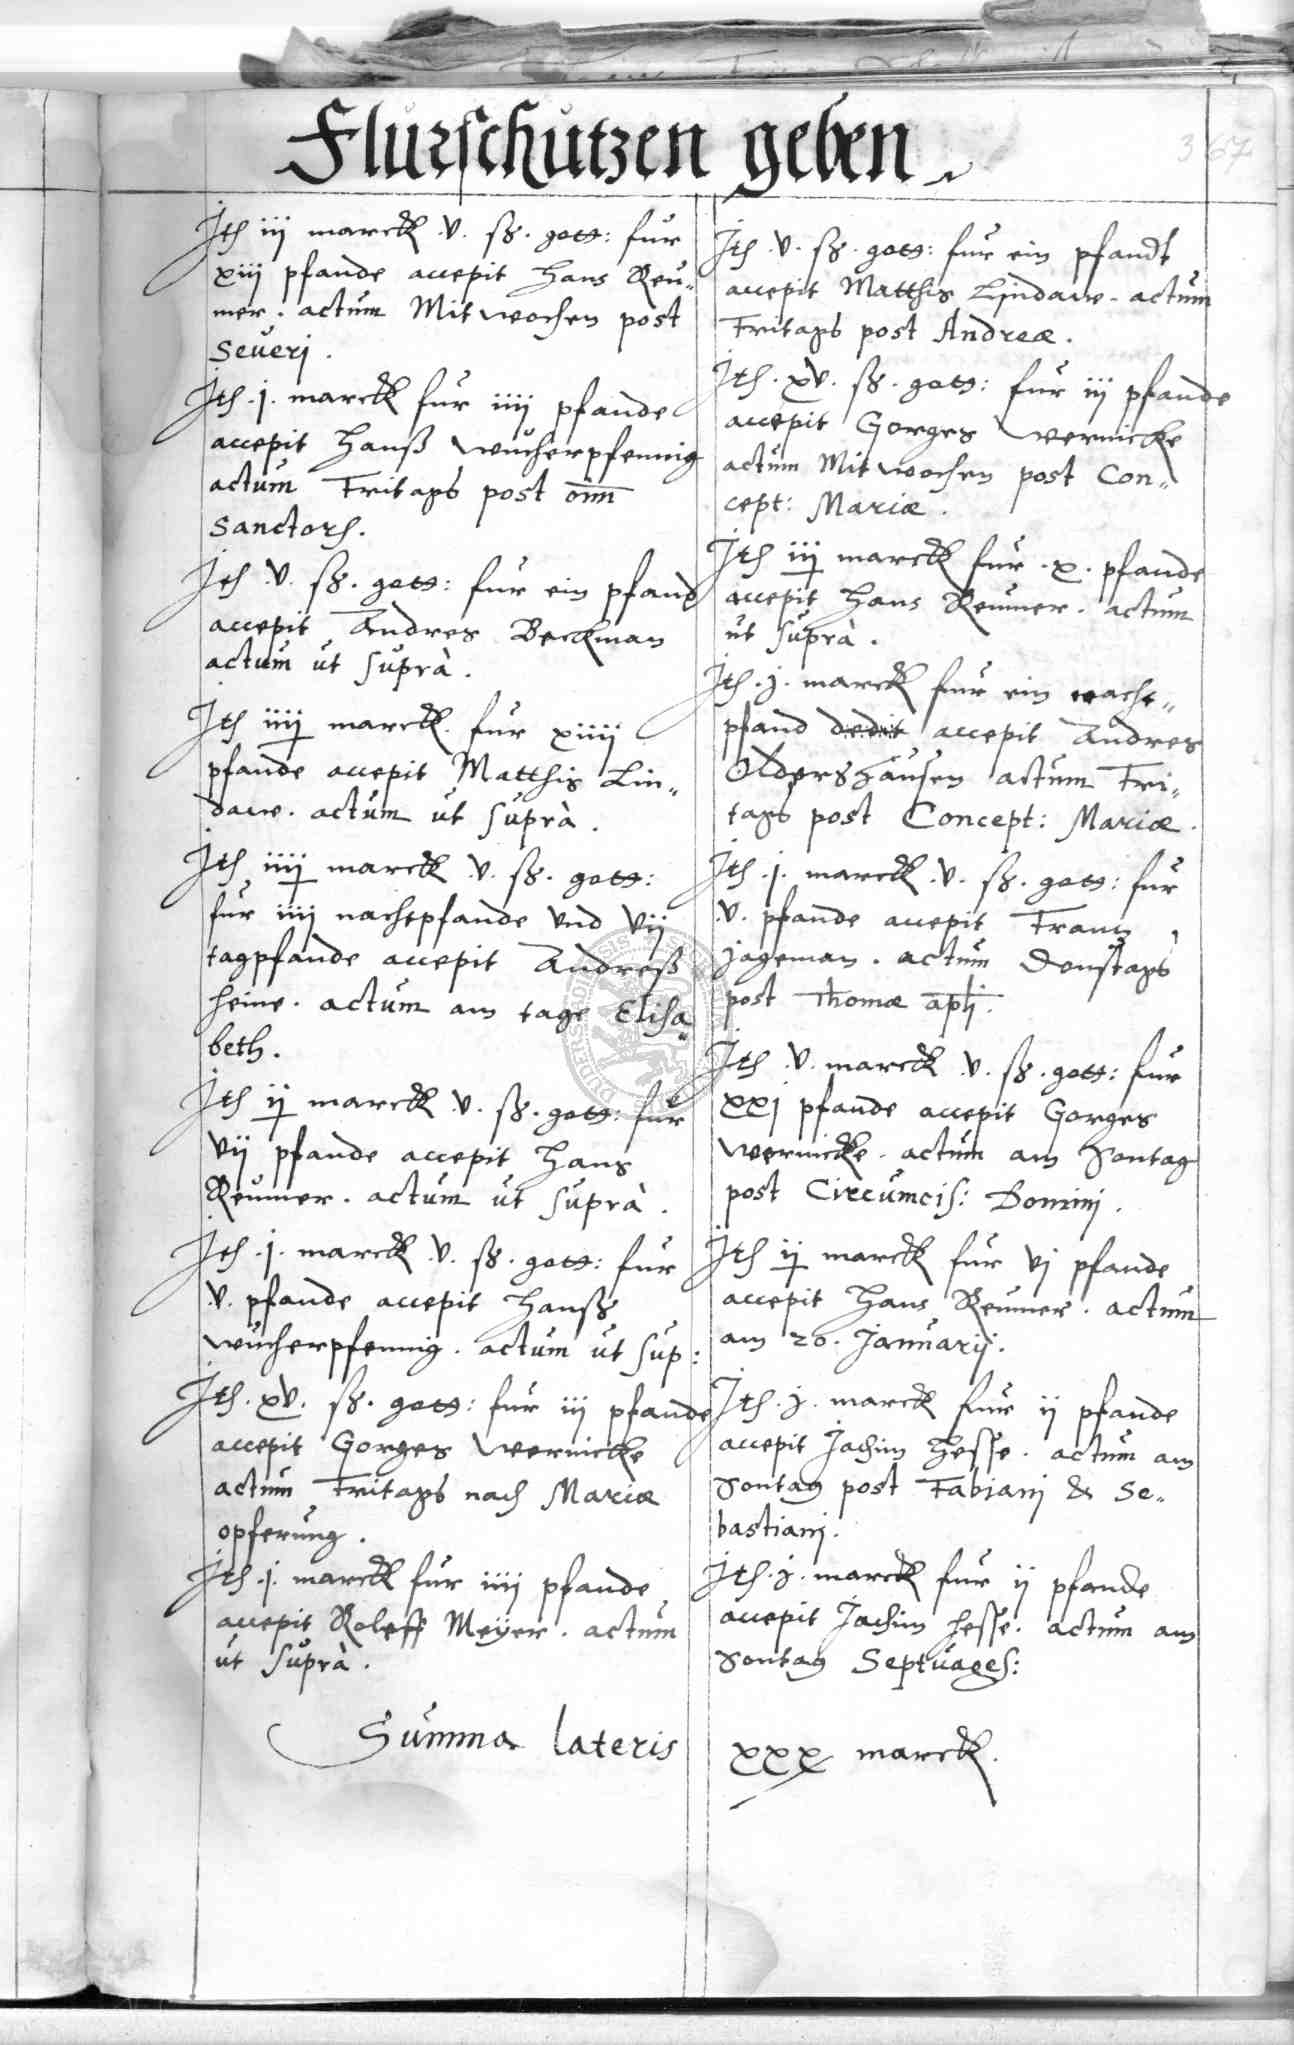 Flurschutzen geben
367
Jtē iij marck .v. ß. gott: fur
xiij pfande accepit Hans Reu„
mer. actum Mitwochen post
Severj.
Jtē .j. marck fur iiij pfande
accepit Hanß Wucherpfennig
actum Fritags post om̄
Sanctorē.
Jtē .v. ß. gott: fur ein pfand
accepit Andres Beckman
actum ut suprà.
Jtē iiij marck fur xiiij
pfande accepit Matthis Lin„
daw. actum ut suprà.
Jtē iiij marck .v. ß. gott:
fur iiij nachtpfande vnd vij
tagpfande accepit Andreß
Heine. actum am tage Elisa„
beth.
Jtē ij marck .v. ß. gott: fur
vij pfande accepit Hans
Reumer. actum ut suprà.
Jtē .j. marck .v. ß. gott: fur
.v. pfande accepit Hanß
Wucherpfennig. actum ut sup:
Jtē .xv. ß. gott: fur iij pfande
accepit Gorges Wernicke
actum Fritags nach Mariæ
opferung.
Jtē .j. marck fur iiij pfande
accepit Roleff Meÿer. actum
ut suprà.
Jtē .v. ß. gott: fur ein pfandt
accepit Matthis Lindaw. actum
Fritags post Andreæ.
Jtē .xv. ß. gott: fur iij pfande
accepit Gorges Wernicke
actum Mitwochen post Con„
cept: Mariæ.
Jtē iij marck fur .x. pfande
accepit Hans Reumer. actum
ut suprà.
Jtē .j. marck fur ein nacht„
pfand dedit accepit Andres
Oldershausen actum Fri„
tags post Concept: Mariæ.
Jtē .j. marck .v. ß. gott: fur
.v. pfande accepit Frantz
Jageman. actum Donstags
post Thomæ apłj.
Jtē .v. marck .v. ß. gott: fur
xxj pfande accepit Gorges
Wernicke. actum am Sontag
post Circumcis: Dominj.
Jtē ij marck fur vj pfande
accepit Hans Reumer. actum
am 20. Januarij.
Jtē .j. marck fur ij pfande
accepit Jachim Hesse. actum am
Sontag post Fabianj & Se„
bastianj.
Jtē .j. marck fur ij pfande
accepit Jachim Hesse. actum am
Sontag Septuages:
Summa lateris xxx marck.